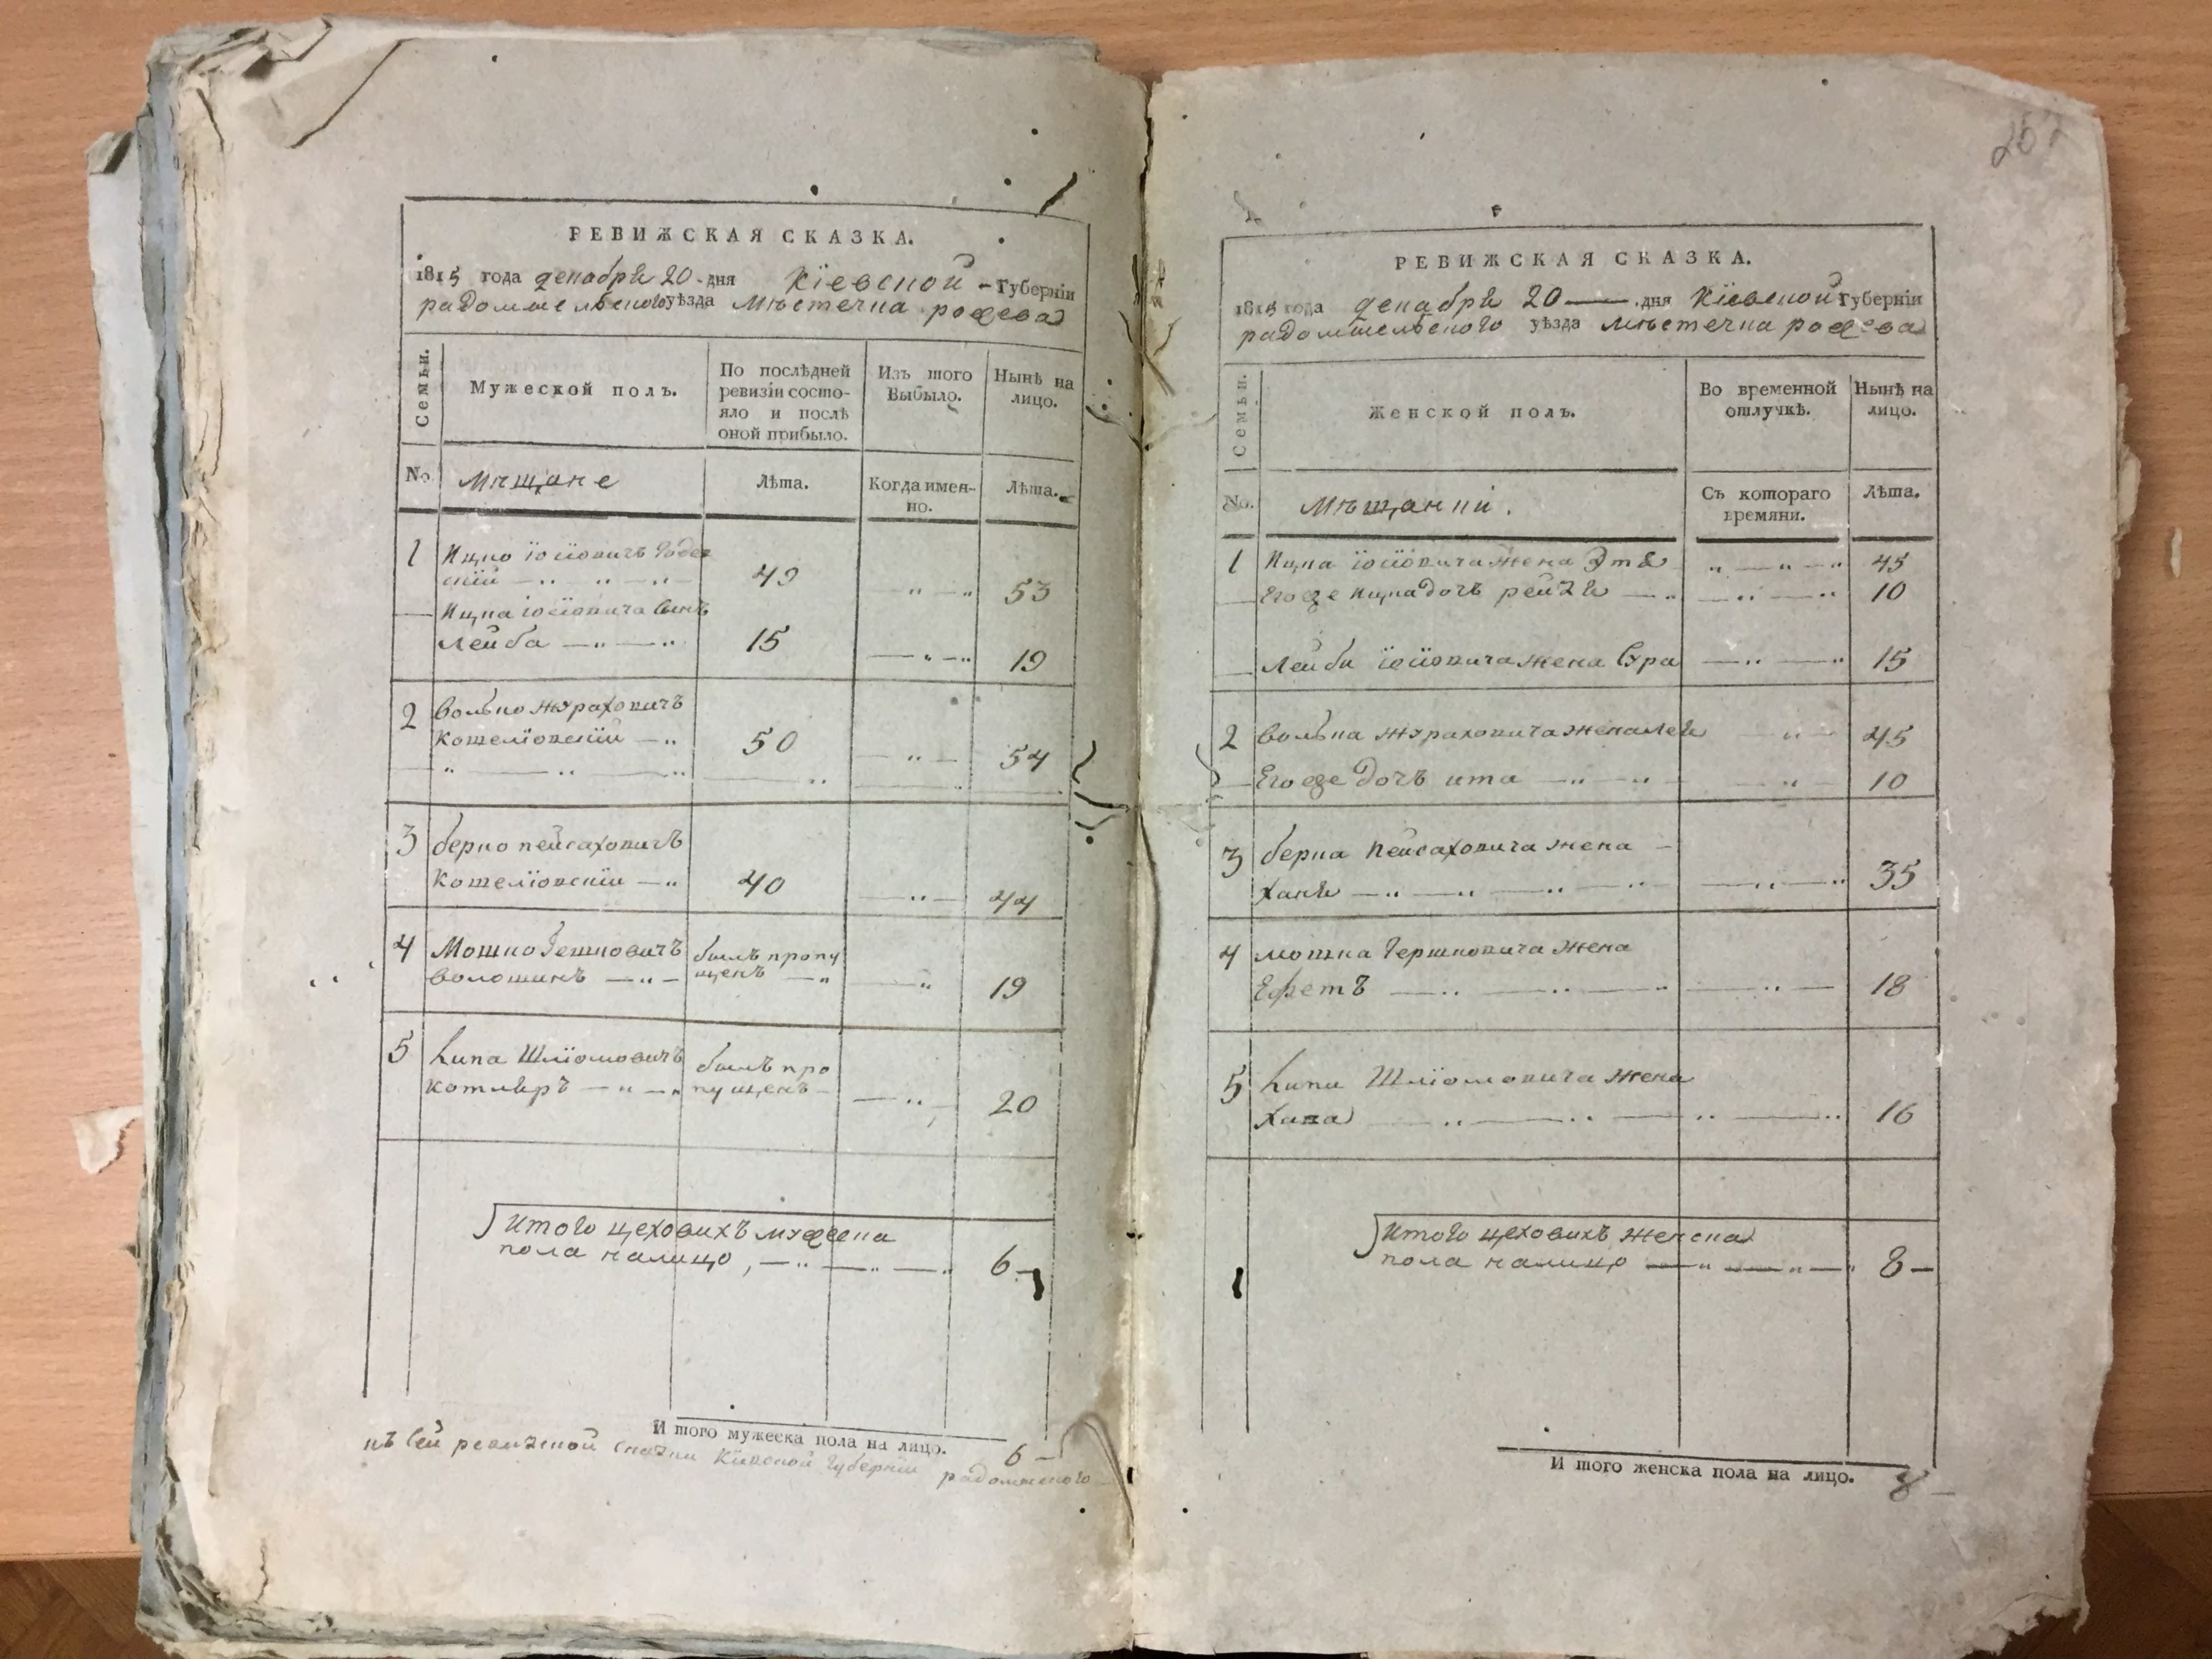 РЕВИЖСКАЯ СКАЗКА.
1815 года декабря 20 дня Кіевской Губерніи
радомысльского уѣзда Мѣстечка рожева
Семьи.
Мужеской полъ.
По послѣдней ревизіи состояло и послѣ оной прибыло.
Изъ того Выбыло.
Нынѣ на лицо.
No
Мѣщане
Лѣта.
Когда именно.
Лѣта.
1 Ицко Іосіовичъ
скій 49 53
Ицка Іосіовича сынъ
Лейба 15 19
2 Волько
Котеліовскій 50 54
3 берко пейсаховичъ
Котеліовскій 40 44
4 Мошко Гешковичъ былъ пропу
волошинъ щенъ 19
5 Липа Шліомовичъ былъ про
котляръ пущенъ 20
Итого цеховихъ мужеска
пола налицо 6
И того мужеска пола на лицо. 6
къ сей ревизской сказки Кіевской губерніи
257
РЕВИЖСКАЯ СКАЗКА.
1815 года декабря 20 дня Кіевской Губерніи
радомысльского уѣзда Мѣстечка рожева
Семьи.
Женской полъ.
Во временной отлучкѣ.
Нынѣ на лицо.
No.
Мѣщанки.
Съ котораго времяни.
Лѣта.
1 Ицка Іосіовича жена Этя 45
Егоже Ицка дочь рейзя 10
Лейби Іосіовича жена Сура 15
2 Волька жена Лея 45
Егоже дочъ ита 10
3 берка Пейсаховича жена
Ханя 35
4 мошка Гершковича жена
18
5 Липи Шліомовича жена
Хана 16
Итого цеховихъ женска
пола налицо 8
И того женска пола на лицо. 8